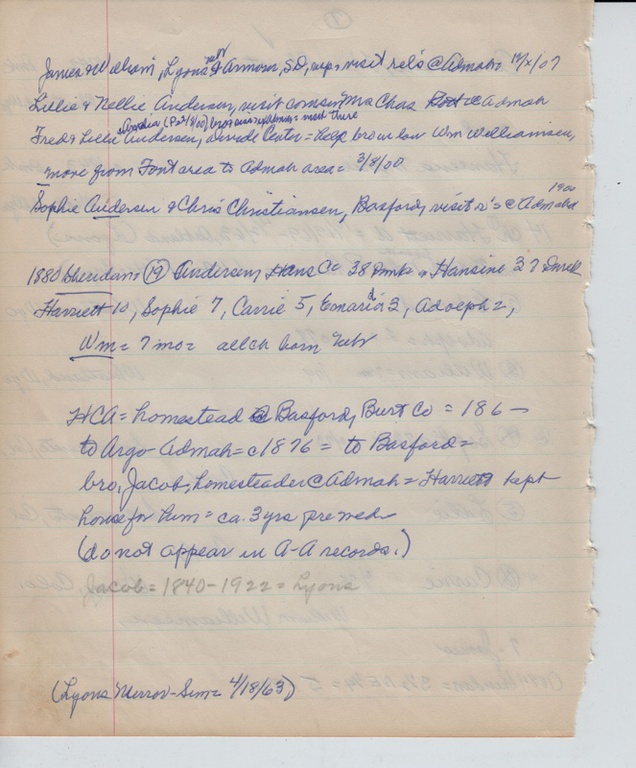 James & William, Lyons Nebr & Armour, SD, resp, visit rels @ Admah = 10/x/07
Lillie & Nellie Andersen, visit cousin Mrs Chas @ Admah
Arcadia (Pat 3/8/00) bros overs there
Fred & Lillie Andersen, Center = help bro in law Wm Williamsen,
move from Font area to Admah area = 3/8/00
Sophie Andersen & Chris Christiansen, Basford, visit r's = @ Admah 1900
1880 Sheridan = (19) Andersen, Hans C 38 Dmk = Hansine 37 Dmk
Harriett 10, Sophie 7, Carrie 5, 3, Adolph 2,
Wm = 7 mo = all ch born Nebr
HCA = homestead @ Basford, Burt Co = 186 —
to Argo-Admah = c1876 = to Basford =
bro, Jacob, homesteader @ Admah = Harriett kept
house for him = ca. 3 yrs pre wed
(do not appear in A-A records.)
Jacob = 1840-1922 = Lyons
(Lyons Mirror-Sun = 4/18/63)